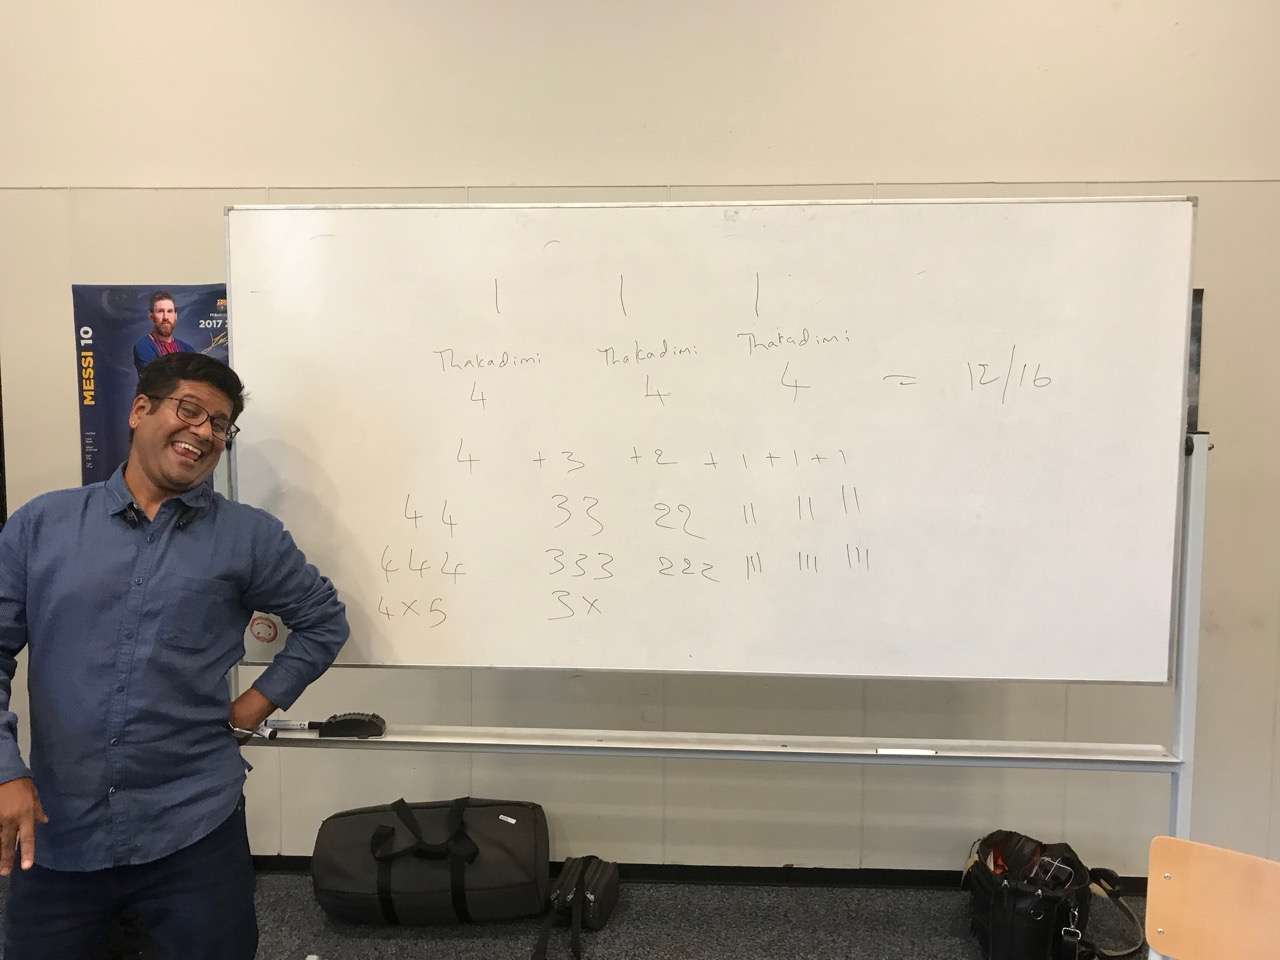 | | |
Thakadimi Thakadimi Thakadimi
4 4 4 = 12/16
4 +3 +2 + 1 + 1 + 1
44 33 22 11 11 11
444 333 222 111 111 111
4 x 5 3 x
MESSI 10
2017